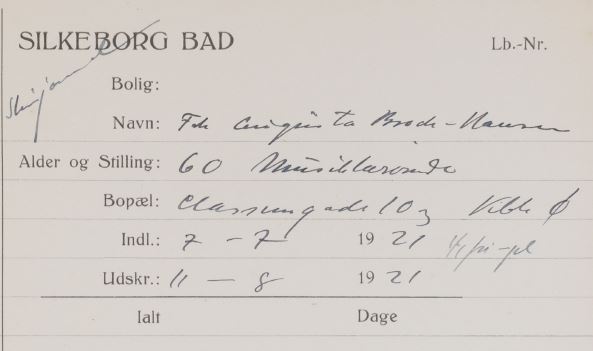 SILKEBORG BAD Lb.-Nr.
Bolig:
Navn: Frk Augusta Brock-Hansen
Alder og Stilling: 60 Musiklærerinde
Bopæl: Classensgade 10 Kbh Ø
Indl.: 7 - 7 1921
Udskr.: 11 - 8 1921
Ialt Dage